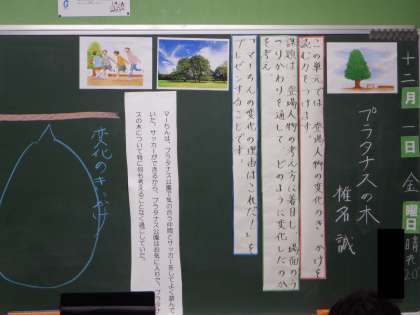 十二月一日金曜日晴れ20
プラタナスの木
椎名誠
この単元では、登場人物の変化のきっかけを
読む力をつけます。
課題は、登場人物の考え方に着目し、場面のつ
ながりを通して、どのように変化したのか
を考え
「マーちんの変化の理由はこれだ！」を
プレゼンすることです！
マーちんは、プラタナス公園で気の合う仲間とサッカーをしてよく遊んで
いた。サッカーができるから、プラタナス公園はお気に入りで、プラタナ
スの木について特に何も考えることなく過ごしていた。
変化のきっかけ